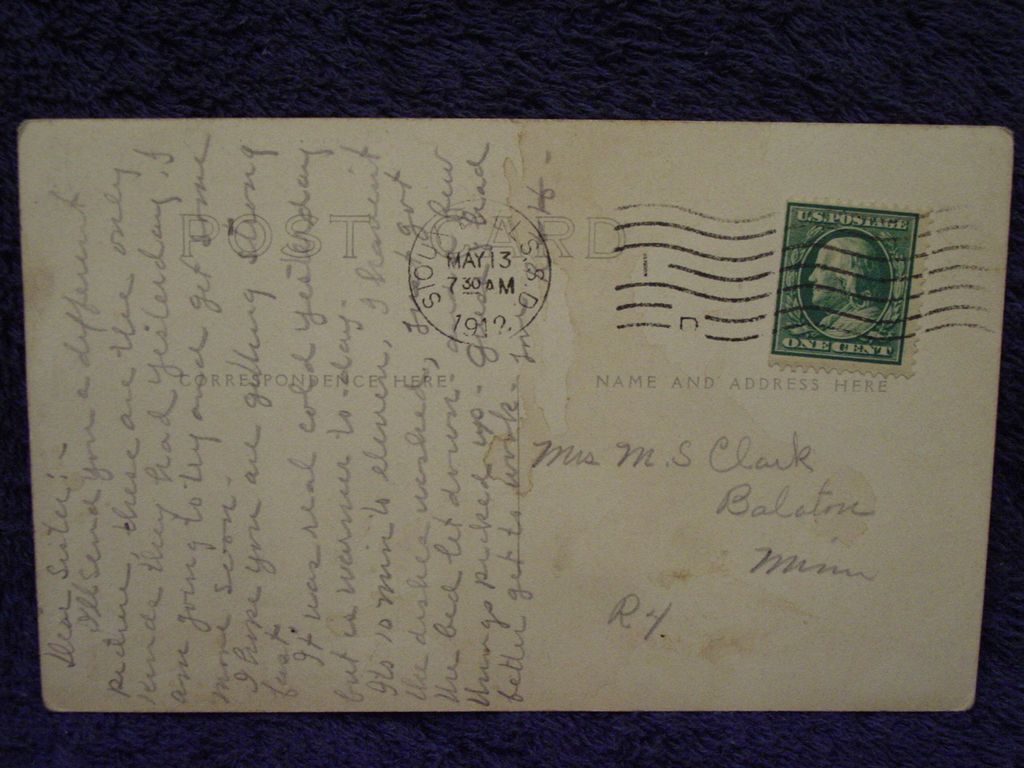 POST CARD
CORRESPONDENCE HERE
NAME AND ADDRESS HERE
SIOUX S.D.
MAY 13
7 30 AM
1912
U.S. POSTAGE
ONE CENT
Mrs M. S Clark
Balaton
Minn
R 4
Dear Sister:-
I'll send you a different
picture, these are the only
kinds they had yesterday. I
am going to try and get some
more soon.
I hope you are getting along
fast.
It was real cold yesterday
but is warmer to-day.
Its 10 min to eleven, I haven't
the dishes washed, just got
the bed let down and a few
things picked up. Guess I had
better get to work.